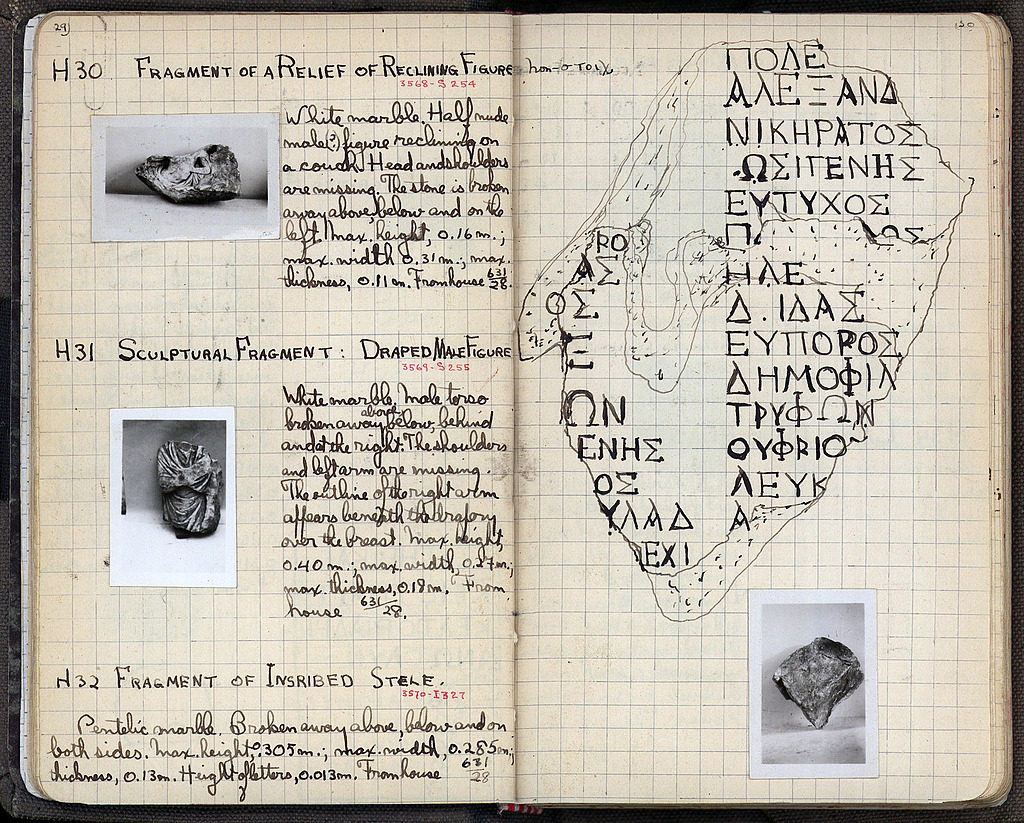 29
H30 FRAGMENT OF A RELIEF OF RECLINING FIGURE
3568-S 254
White marble. Half nude
male(?) figure reclining on
a couch. Head and shoulders
are missing. The stone is broken
away above, below and on the
left. Max. height, 0.16 m.;
max. width 0.31 m.; max.
thickness, 0.11 m. From house 631/28.
H31 SCULPTURAL FRAGMENT: DRAPED MALE FIGURE
3569-S 255
White marble, male torso
broken away above, below, behind
and at the right. The shoulders
and left arm are missing.
The outline of the right arm
appears beneath the drapery
over the breast. Max. height,
0.40 m.; max. width, 0.27 m.;
max. thickness, 0.18 m. From
house 631/28.
H32 FRAGMENT OF INSRIBED STELE.
3570-I 327
Pentelic marble. Broken away above, below and on
both sides. Max. height, 0.305 m.; max. width, 0.285 m.;
thickness, 0.13 m. Height of letters, 0.013 m. From house 631/28
30
ΡΟ
ΑΣ
ΟΣ
ΩΝ
ΕΝΗΣ
ΟΣ
ΥΛΑΔ
ΕΧΙ
ΠΟΛΕ
ΑΛΕΞΑΝΔ
ΝΙΚΗΡΑΤΟΣ
.ΩΣΙΓΕΝΗΣ
ΕΥΤΥΧΟΣ
ΗΛΕ
Δ.ΙΔΑΣ
ΕΥΠΟΡΟΣ
ΔΗΜΟΦΙΛ
ΤΡΥΦΩΝ
ΟΥΦΡΙΟ
ΛΕΥΚ
Α